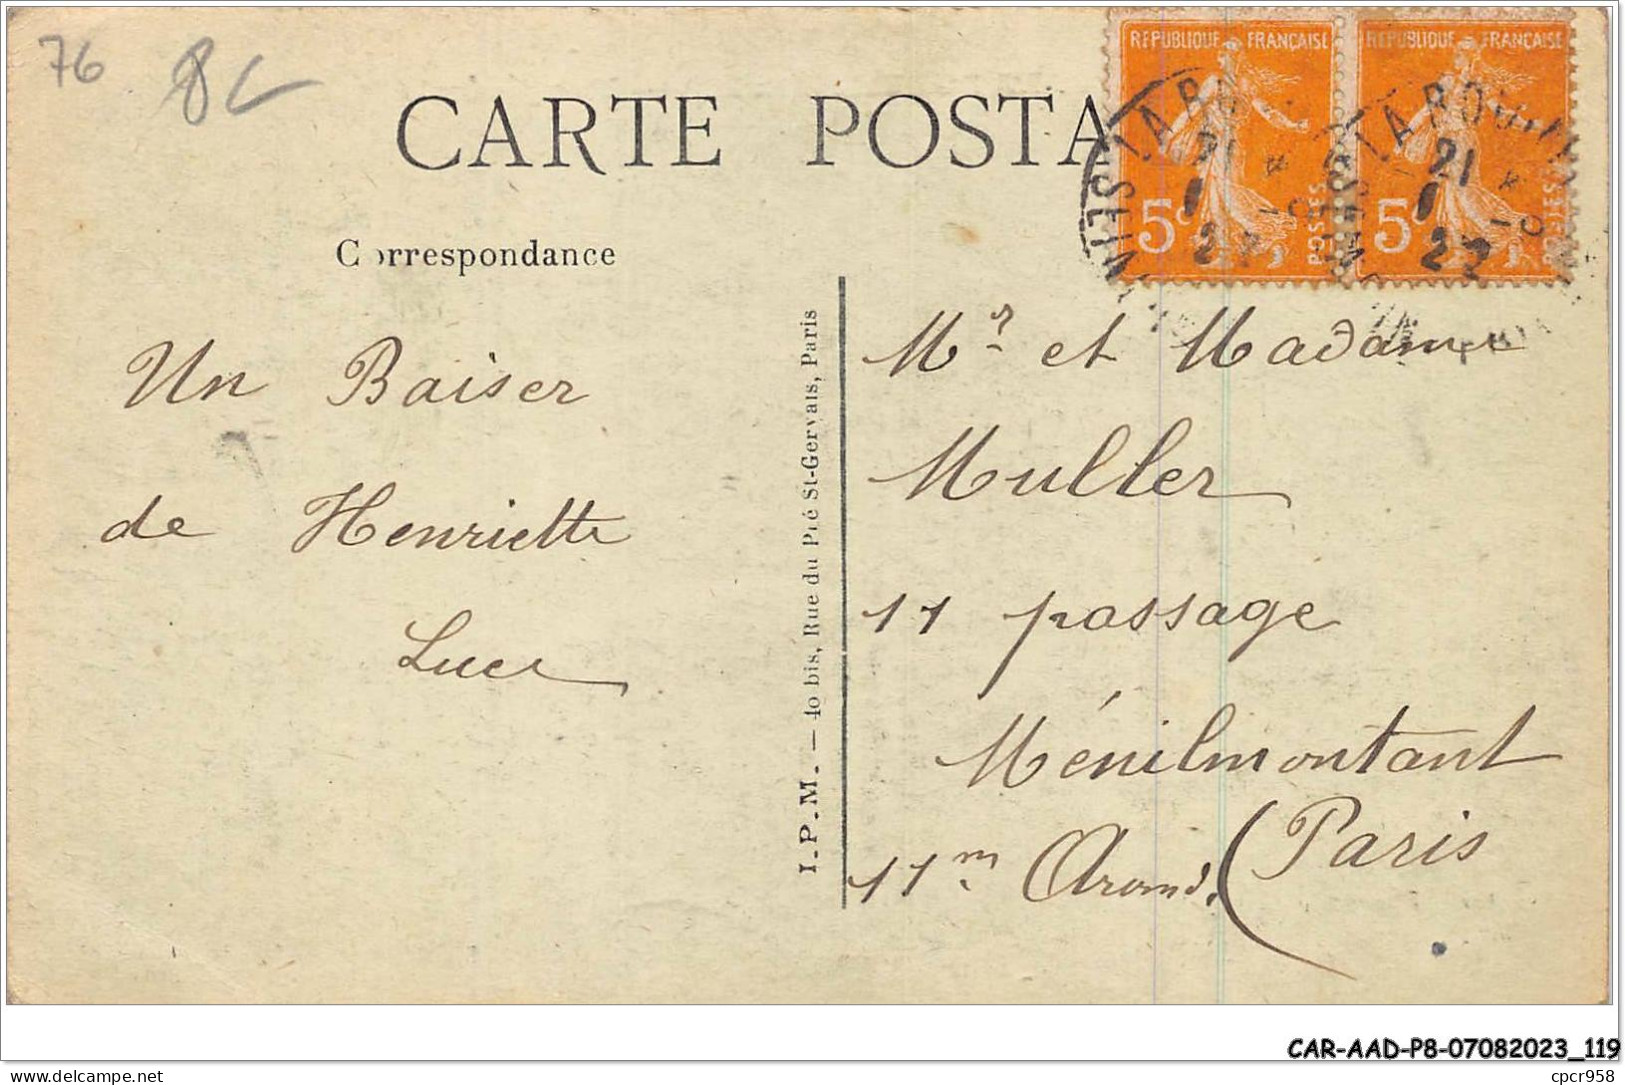 76
CARTE POSTA
REPUBLIQUE FRANÇAISE
REPUBLIQUE FRANÇAISE
5c POSTES
5c POSTES
21
1
22
21
1
22
Correspondance
Un Baiser
de Henriette
I.P.M. — 40 bis, Rue du Pré St-Gervais, Paris
Mr et Madame
Muller
11 passage
Ménilmontant
11m Arond. (Paris
CAR-AAD-P8-07082023_119
delcampe.net
cpcr958